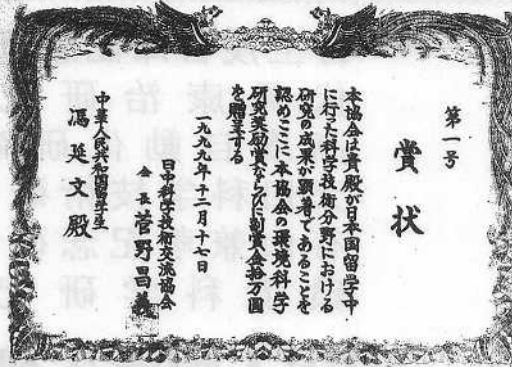 第一号
賞状
本協会は貴殿が日本国留学中
に行った科学技術分野における
研究の成果が顕著であることを
認めここに本協会の環境科学
研究奨励賞ならびに副賞金拾万圓
を贈呈する
一九九九年十二月十七日
日中科学技術交流協会
会長 菅野昌義
中華人民共和国留学生
馮延文殿